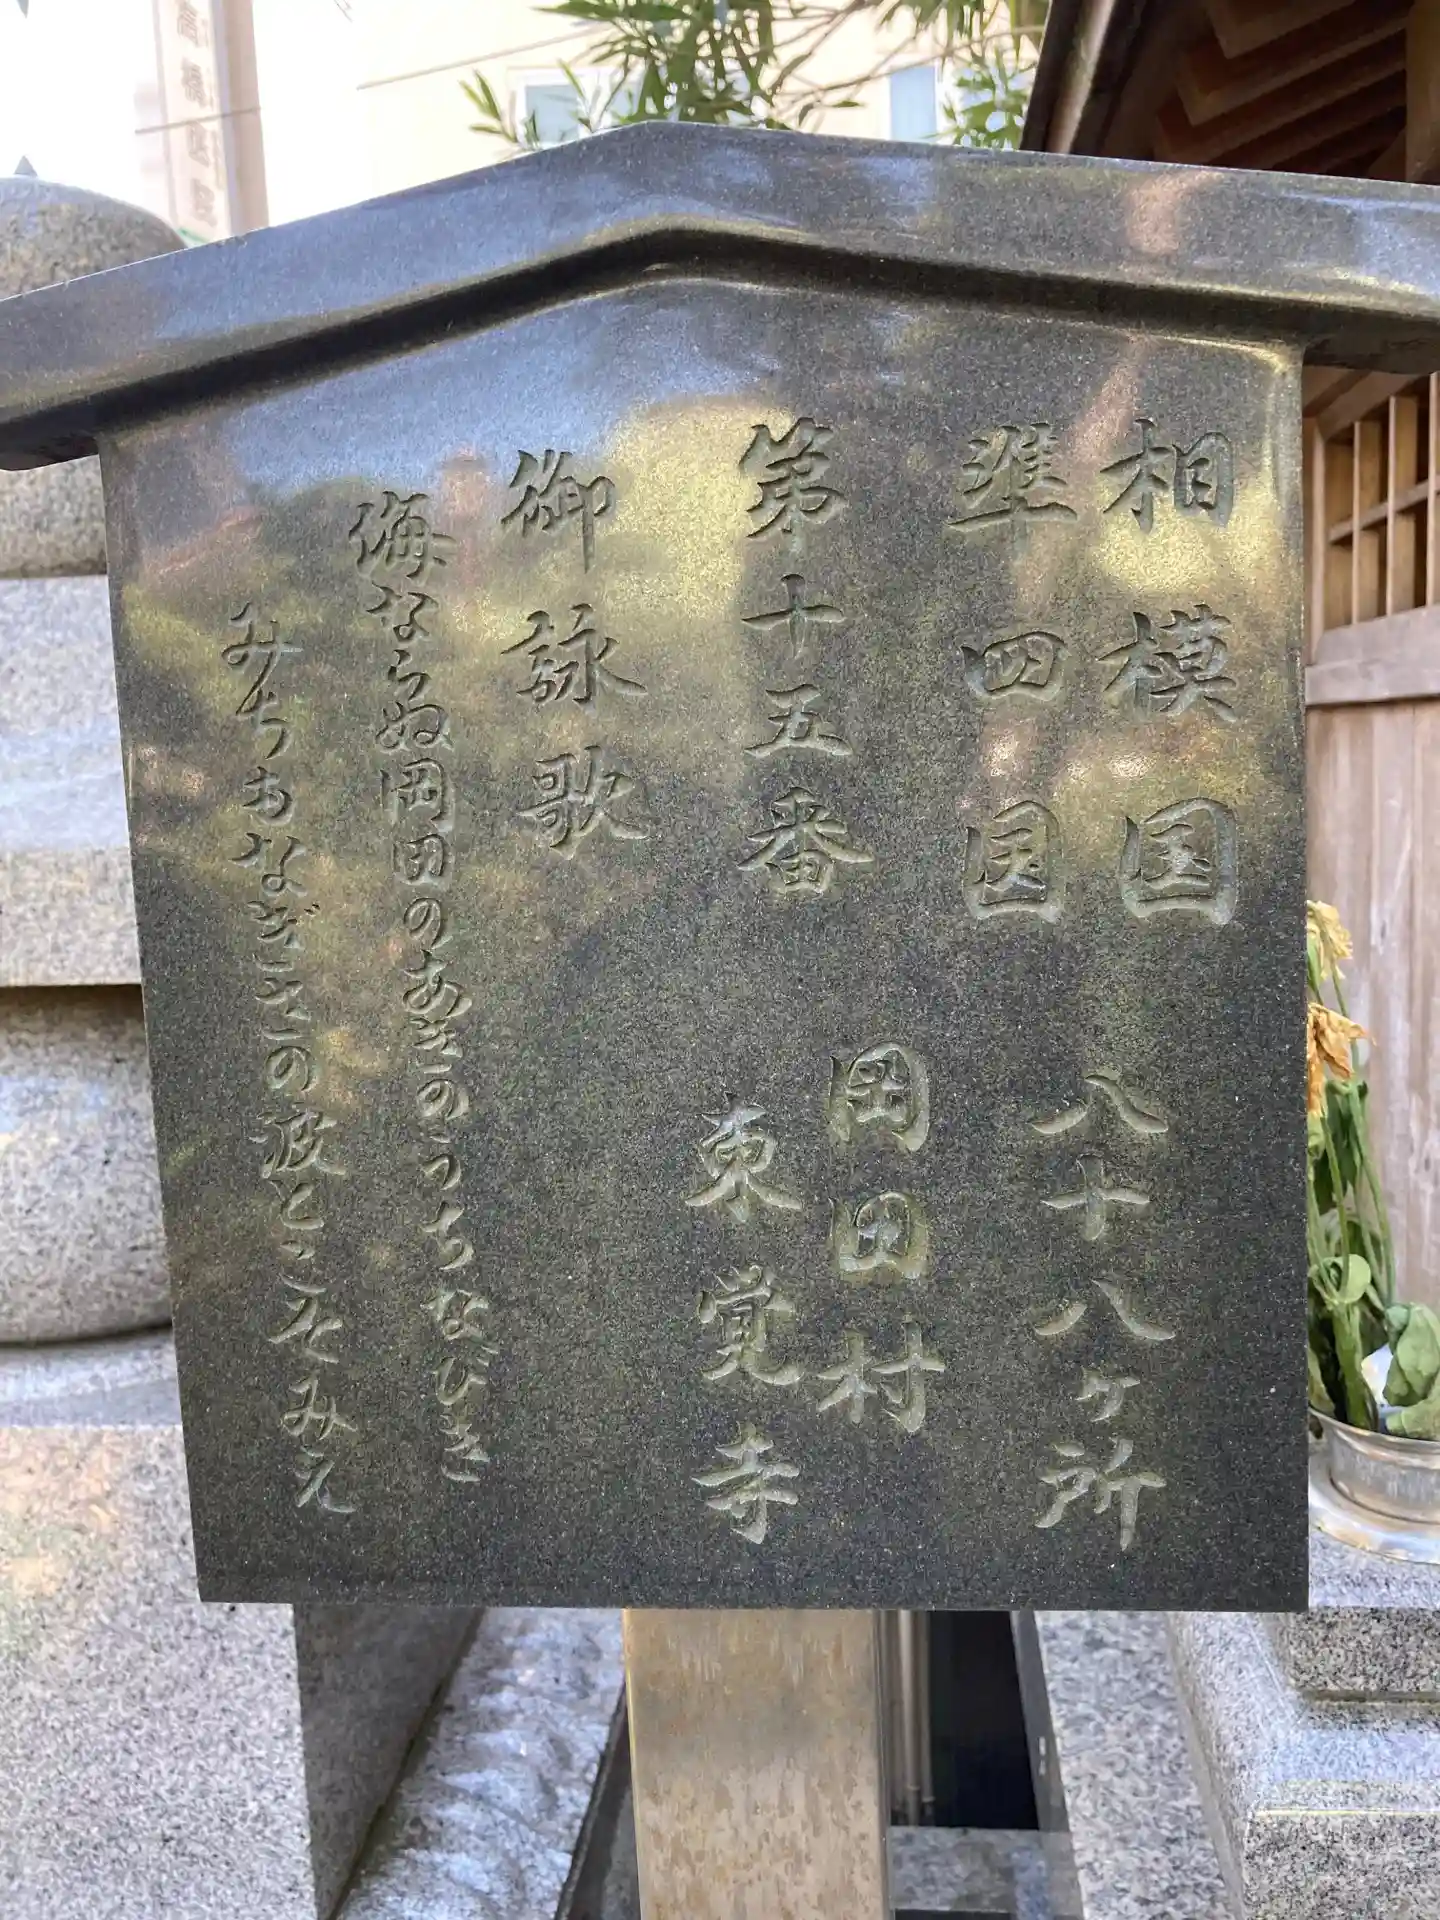 相模国
準四国 八十八ヶ所
第十五番 岡田村
東覚寺
御詠歌
海ならぬ岡田のあきのうちなびき
みちもなぎさの波とこそみえ